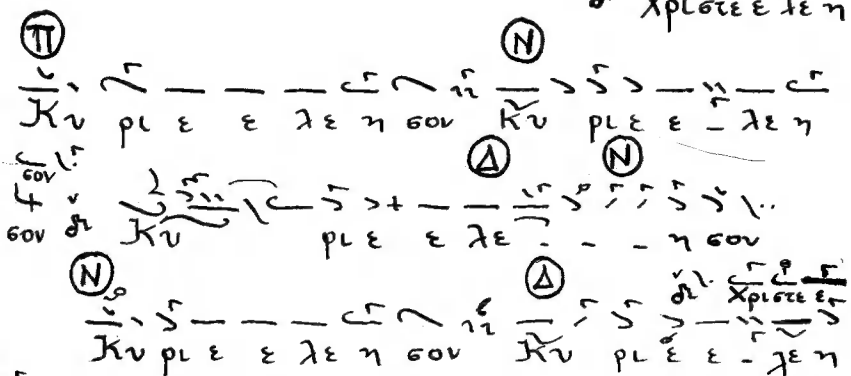 Χριστε ε λε η
Π Ν
Κυ ρι ε ε λε η σον Κυ ρι ε ε - λε η
σον
Δ Ν
σον Κυ ρι ε ε λε - - - η σον
Ν Δ
Χριστε ε
Κυ ρι ε ε λε η σον Κυ ρι ε ε - λε η